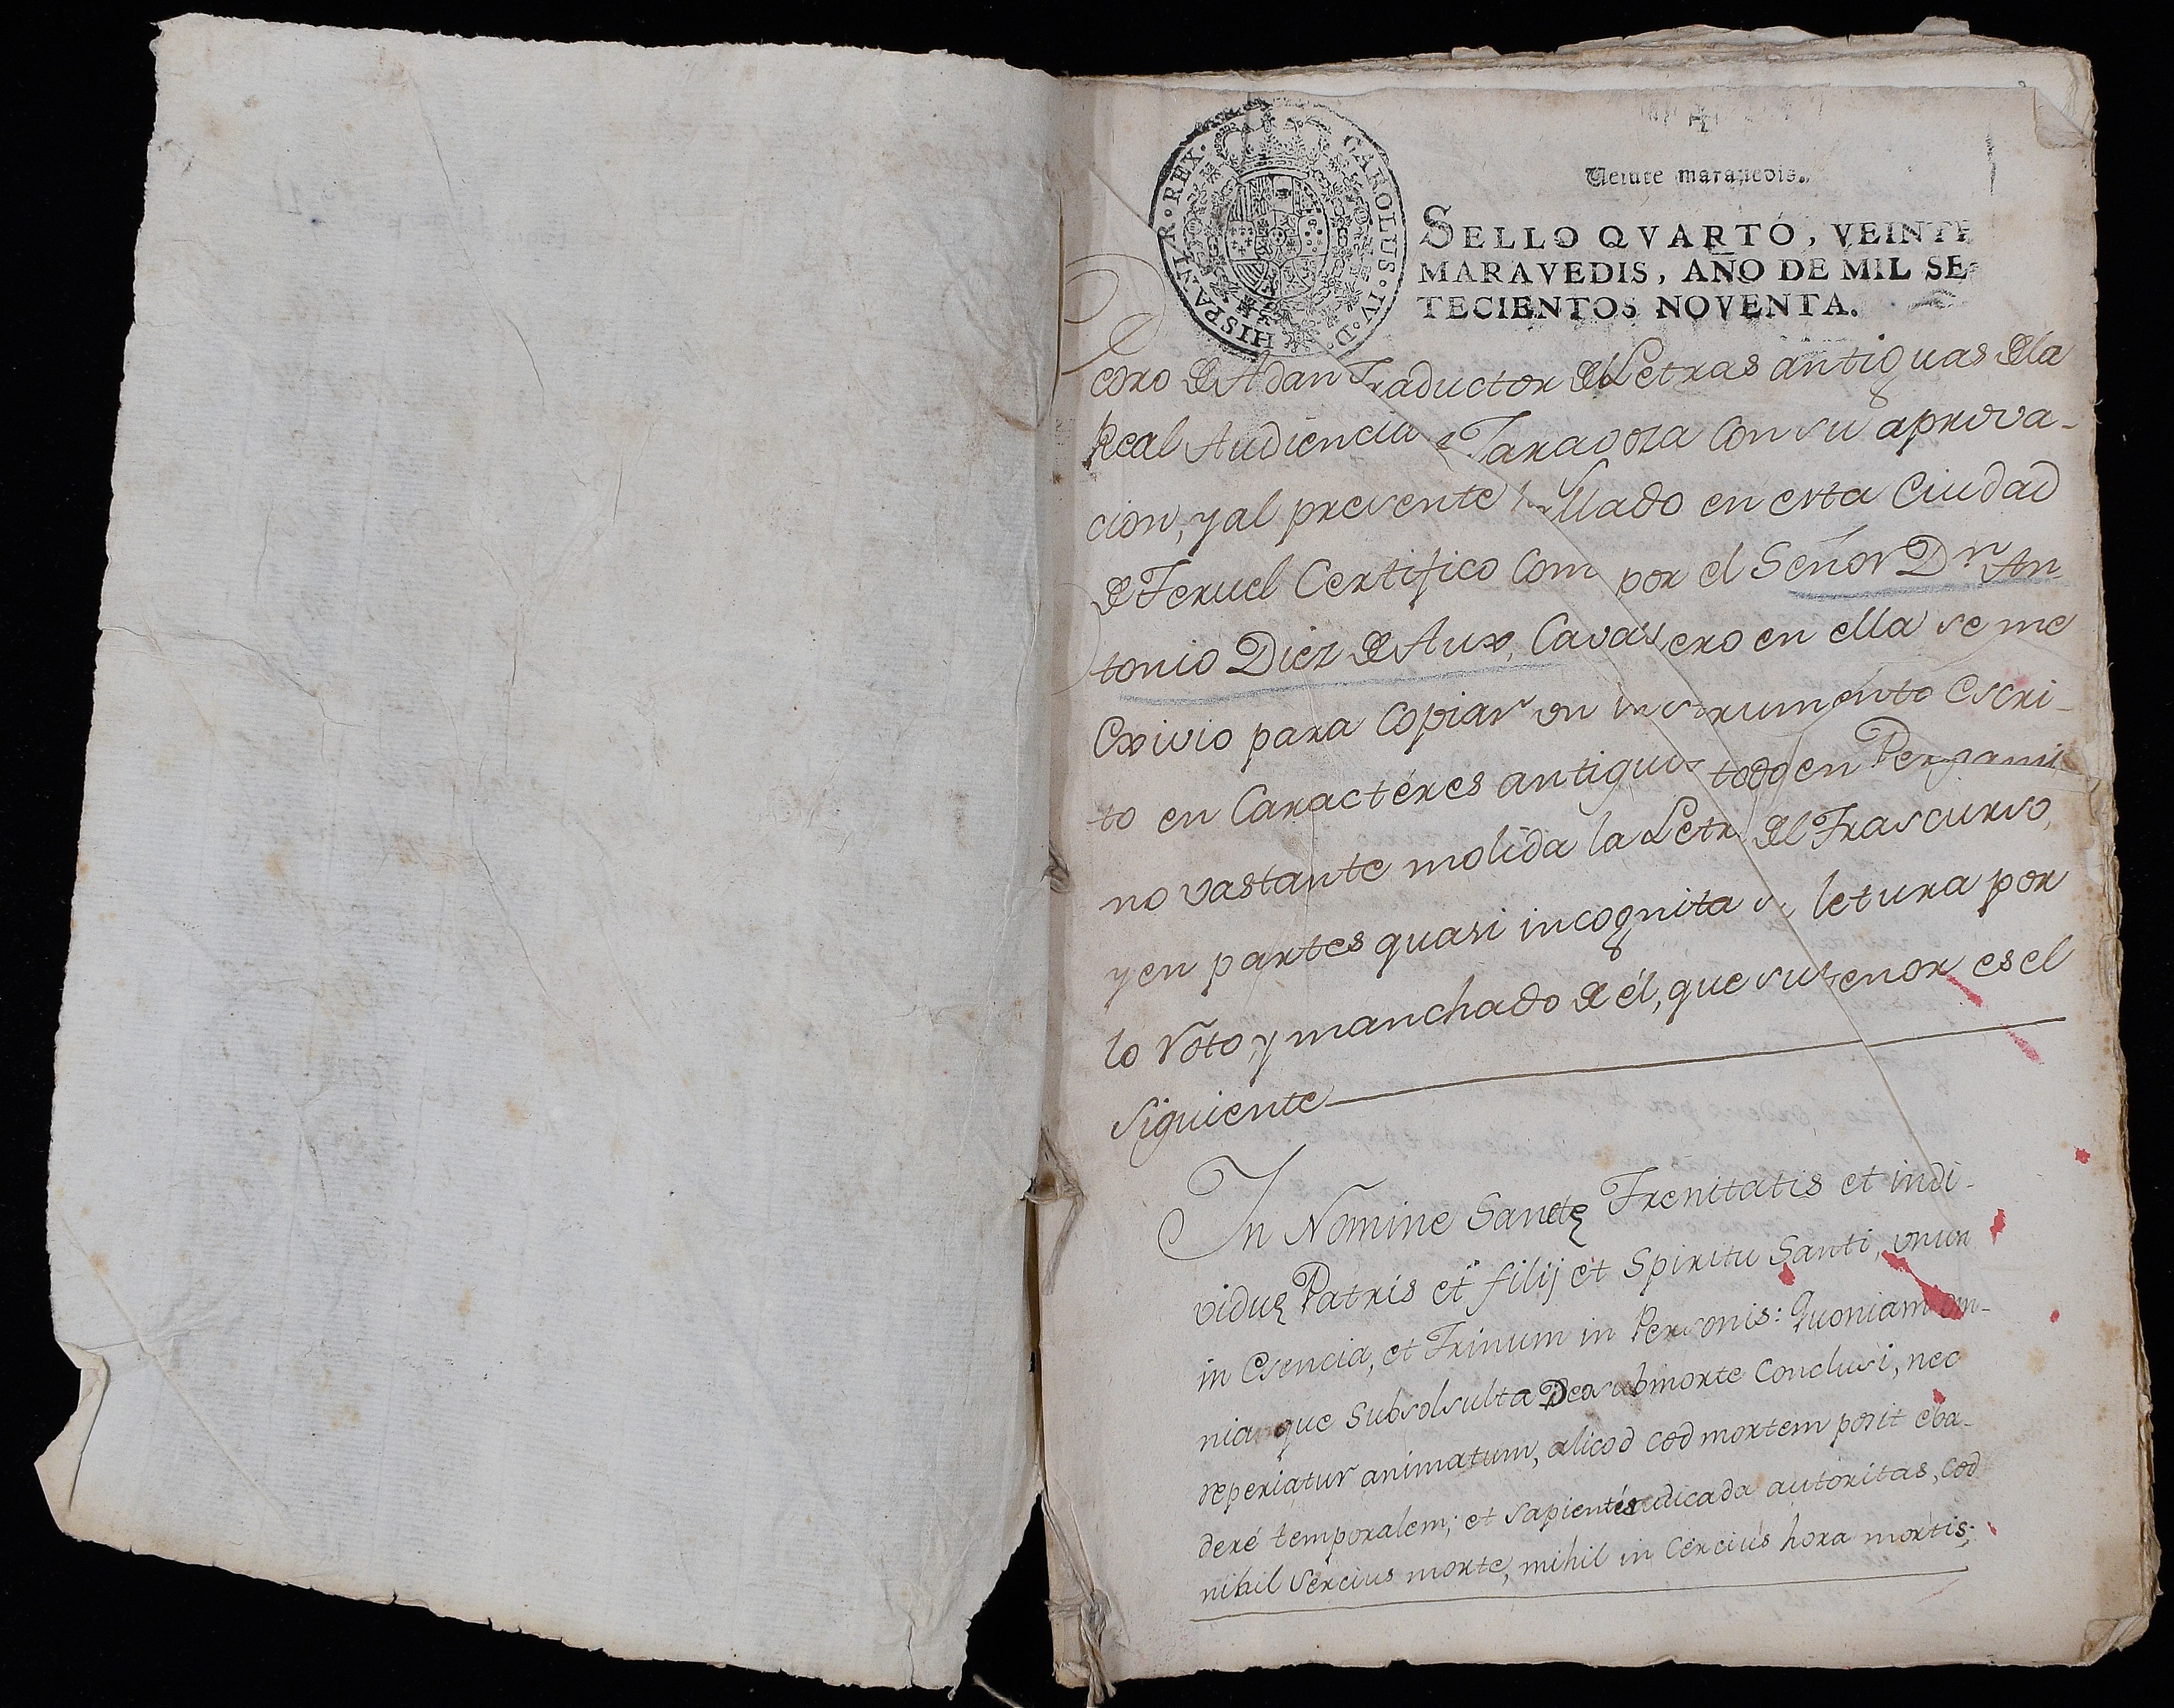 HISPANIAR·REX· CAROLUS·IV·D·G·
Veinte maravedis.
SELLO QVARTO, VEINTE
MARAVEDIS, AÑO DE MIL SE-
TECIENTOS NOVENTA.
Pedro de Adan Traductor de Letras antiguas de la
Real Audiencia de Zaragoza con su aprova-
cion, y al presente hallado en esta Ciudad
de Teruel Certifico Como por el Señor Dn. An-
tonio Diez de Aux, Cavallero en ella se me
Exivio para Copiar un instrumento Escri-
to en Caractéres antiguos todo en Pergami-
no vastante molida la Letra del Trascurso,
y en partes quasi incognita su letura por
lo Roto, y manchado de él, que su tenor es el
Siguiente
In Nomine Sanctę Trenitatis et indi-
viduę Patris et filij et Spiritu Santi, unum
in Esencia, et Trinum in Personis: Quoniam om-
nia que Subsolsulta Deo submorte Conclusi, nec
reperiatur animatum, alicod cod mortem posit eba-
deré temporalem; et sapientés udicada autoritas, cod
nihil sercius morte, mihil in Cércius hora mortis;